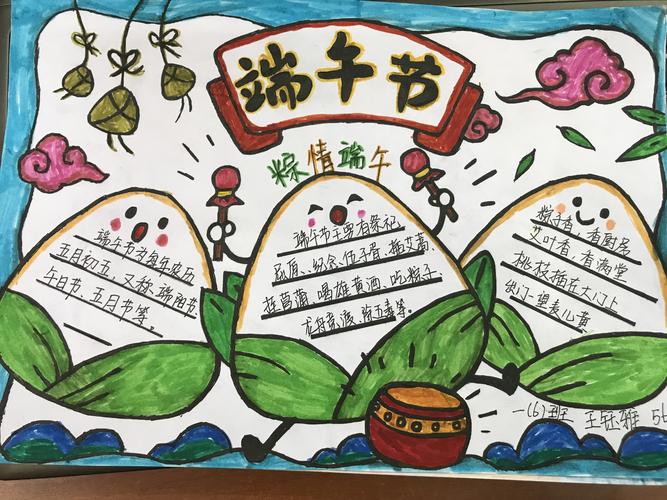 端午节
粽情端午
端午节为每年农历
五月初五，又称端阳节
午日节，五月节等。
端午节主要有祭祀
屈原、纪念伍子胥、插艾蒿
挂菖蒲、喝雄黄酒、吃粽子
龙舟竞渡、除五毒等。
粽子香，香厨房
艾叶香，香满堂
桃枝插在大门上
出门一望麦儿黄
一(6)班 王钰雅 56